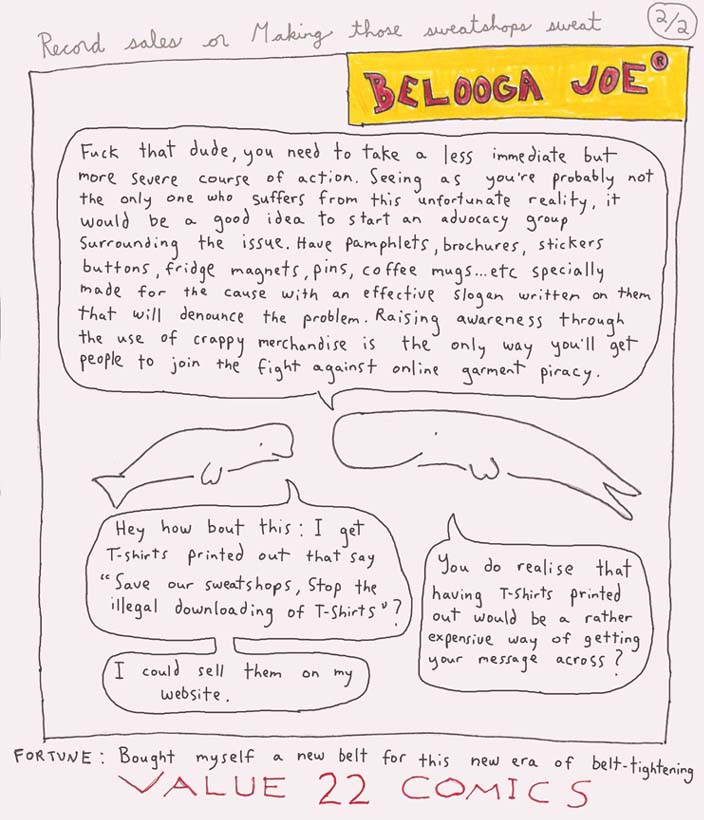 Record sales or Making those sweatshops sweat
2/2
BELOOGA JOE®
Fuck that dude, you need to take a less immediate but
more severe course of action. Seeing as you're probably not
the only one who suffers from this unfortunate reality, it
would be a good idea to start an advocacy group
surrounding the issue. Have pamphlets, brochures, stickers
buttons, fridge magnets, pins, coffee mugs...etc specially
made for the cause with an effective slogan written on them
that will denounce the problem. Raising awareness through
the use of crappy merchandise is the only way you'll get
people to join the fight against online garment piracy.
Hey how bout this: I get
T-shirts printed out that say
“Save our sweatshops, Stop the
illegal downloading of T-Shirts”?
I could sell them on my
website.
You do realise that
having T-Shirts printed
out would be a rather
expensive way of getting
your message across?
FORTUNE: Bought myself a new belt for this new era of belt-tightening
VALUE 22 COMICS